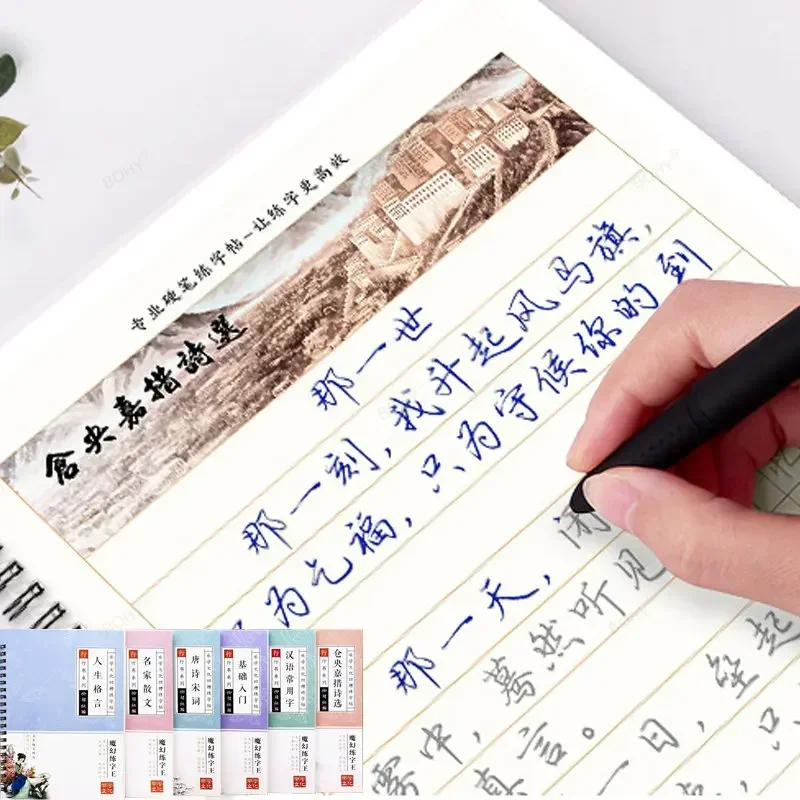 专业硬笔练字帖-让练字更高效
倉央嘉措詩選
那一世
那一刻,我升起风马旗,
为乞福,只为守候你的到
那一天,闭
雾中,蓦然听见
真言。
一日,垒起
只
行
人生格言
魔幻练字王
行
名家散文
魔幻练字王
行
唐诗宋词
魔幻练字王
行
基础入门
魔幻练字王
行
汉语常用字
魔幻练字王
行
仓央嘉措诗选
魔幻练字王